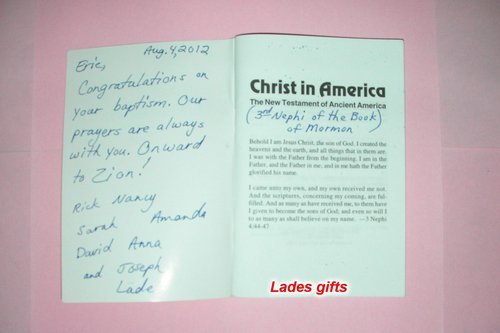 Aug. 4, 2012
Eric,
Congratulations on
your baptism. Our
prayers are always
with you. Onward
to Zion!
Rick Nancy
Sarah Amanda
David Anna
and Joseph
Lade
Christ in America
The New Testament of Ancient America
(3rd Nephi of the Book
of Mormon)
Behold I am Jesus Christ, the son of God. I created the
heavens and the earth, and all things that in them are.
I was with the Father from the beginning. I am in the
Father, and the Father in me; and in me hath the Father
glorified his name.
I came unto my own, and my own received me not.
And the scriptures, concerning my coming, are ful-
filled. And as many as have received me, to them have
I given to become the sons of God; and even so will I
to as many as shall believe on my name. —3 Nephi
4:44-47
Lades gifts